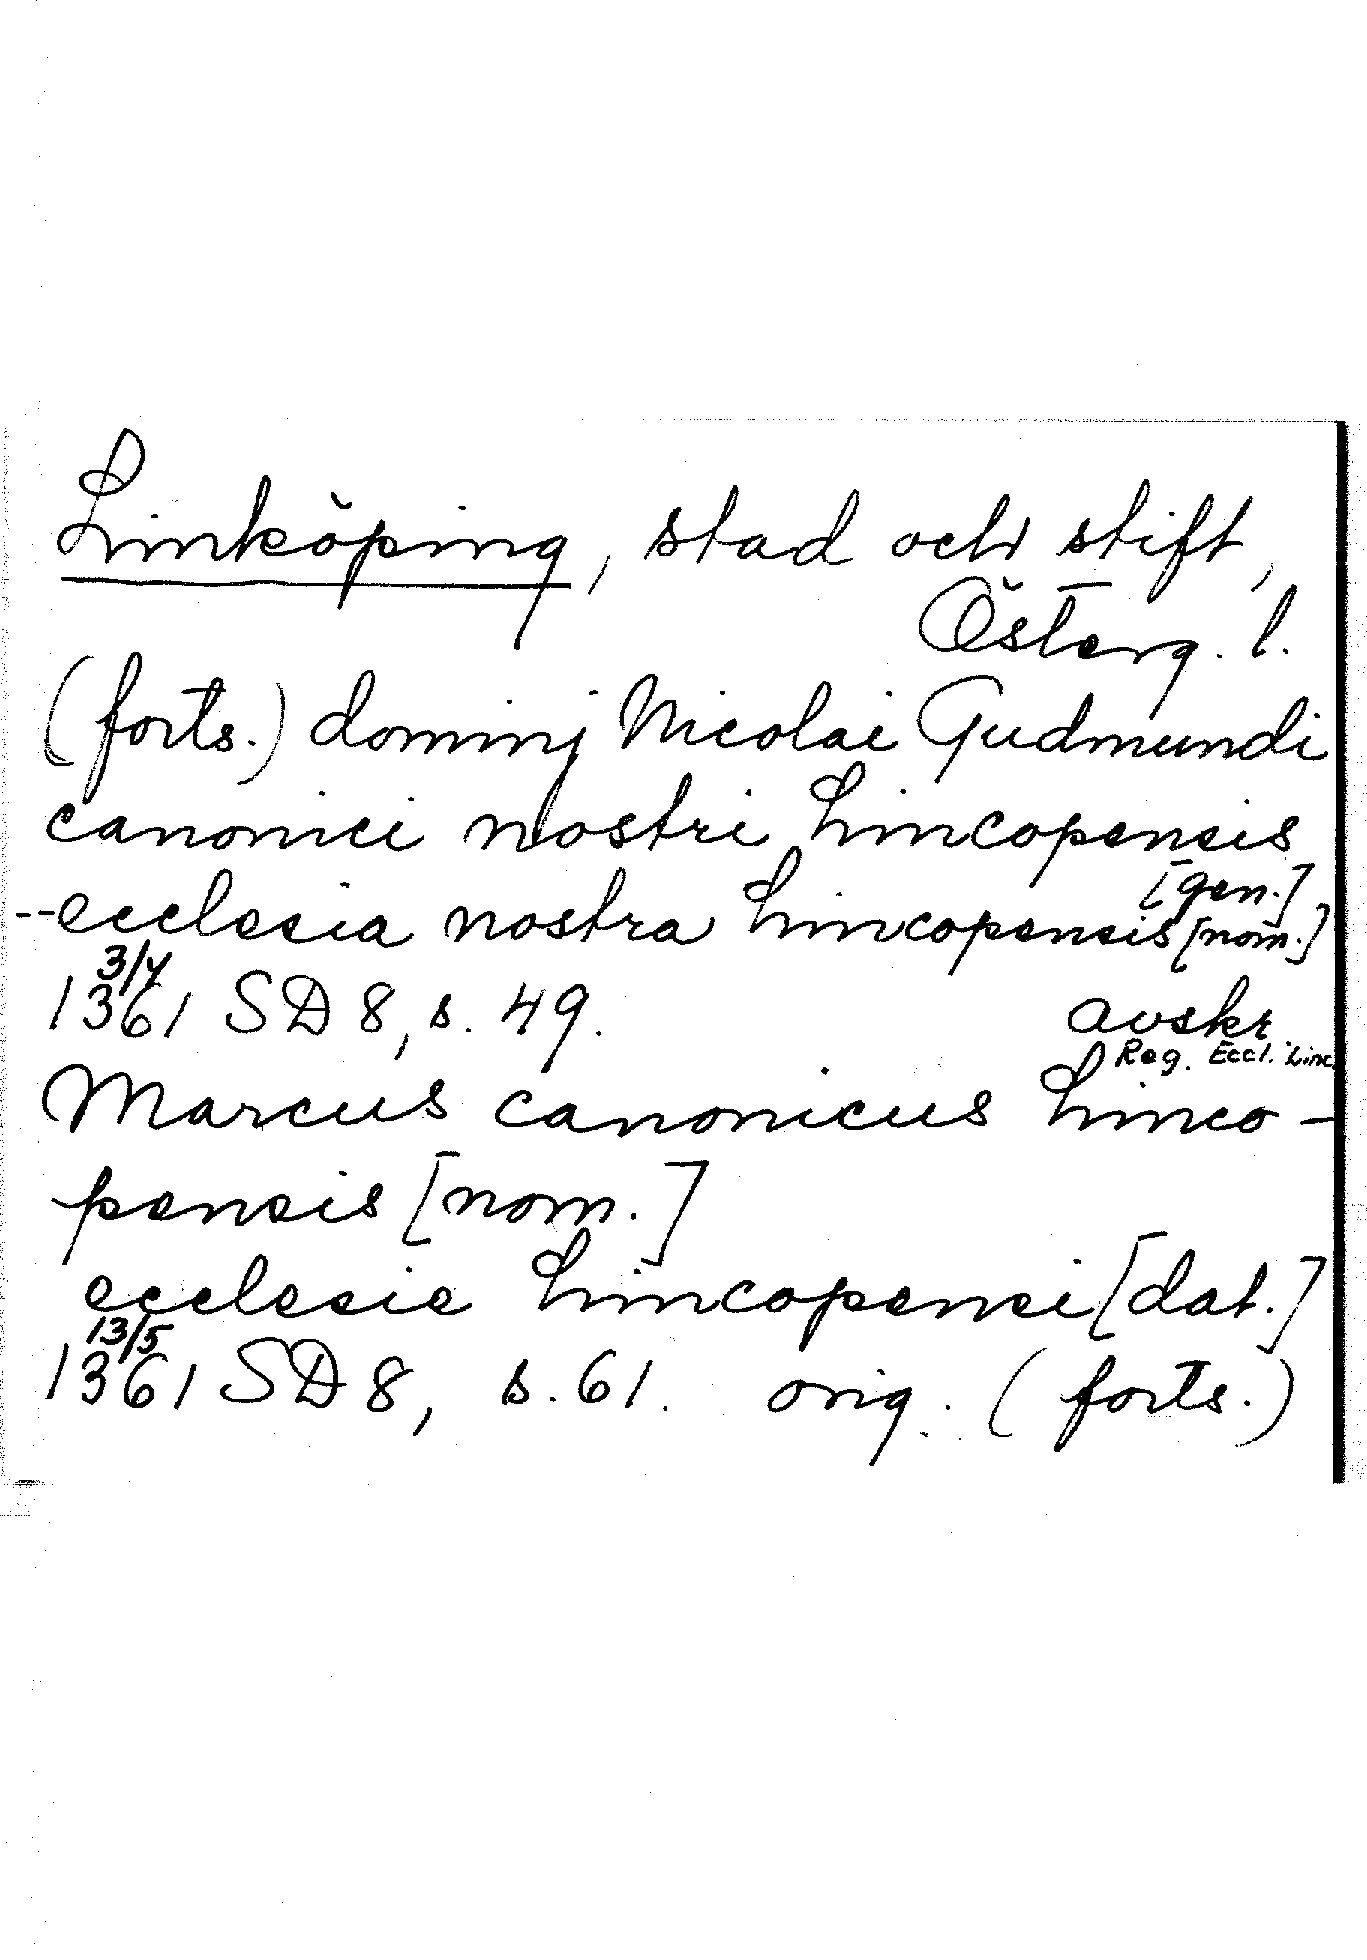 Linköping, stad och stift,
Österg. l.
(forts.) dominj Nicolai Gudmundi
canonici nostri Lincopensis
[gen.]
--ecclesia nostra Lincopensis [nom.]
3/4
1361 SD 8, s. 49. avskr
Reg. Eccl. Linc
Marcus canonicus Linco-
pensis [nom.]
ecclesie Lincopensi [dat.]
13/5
1361 SD 8, s. 61. orig. (forts.)